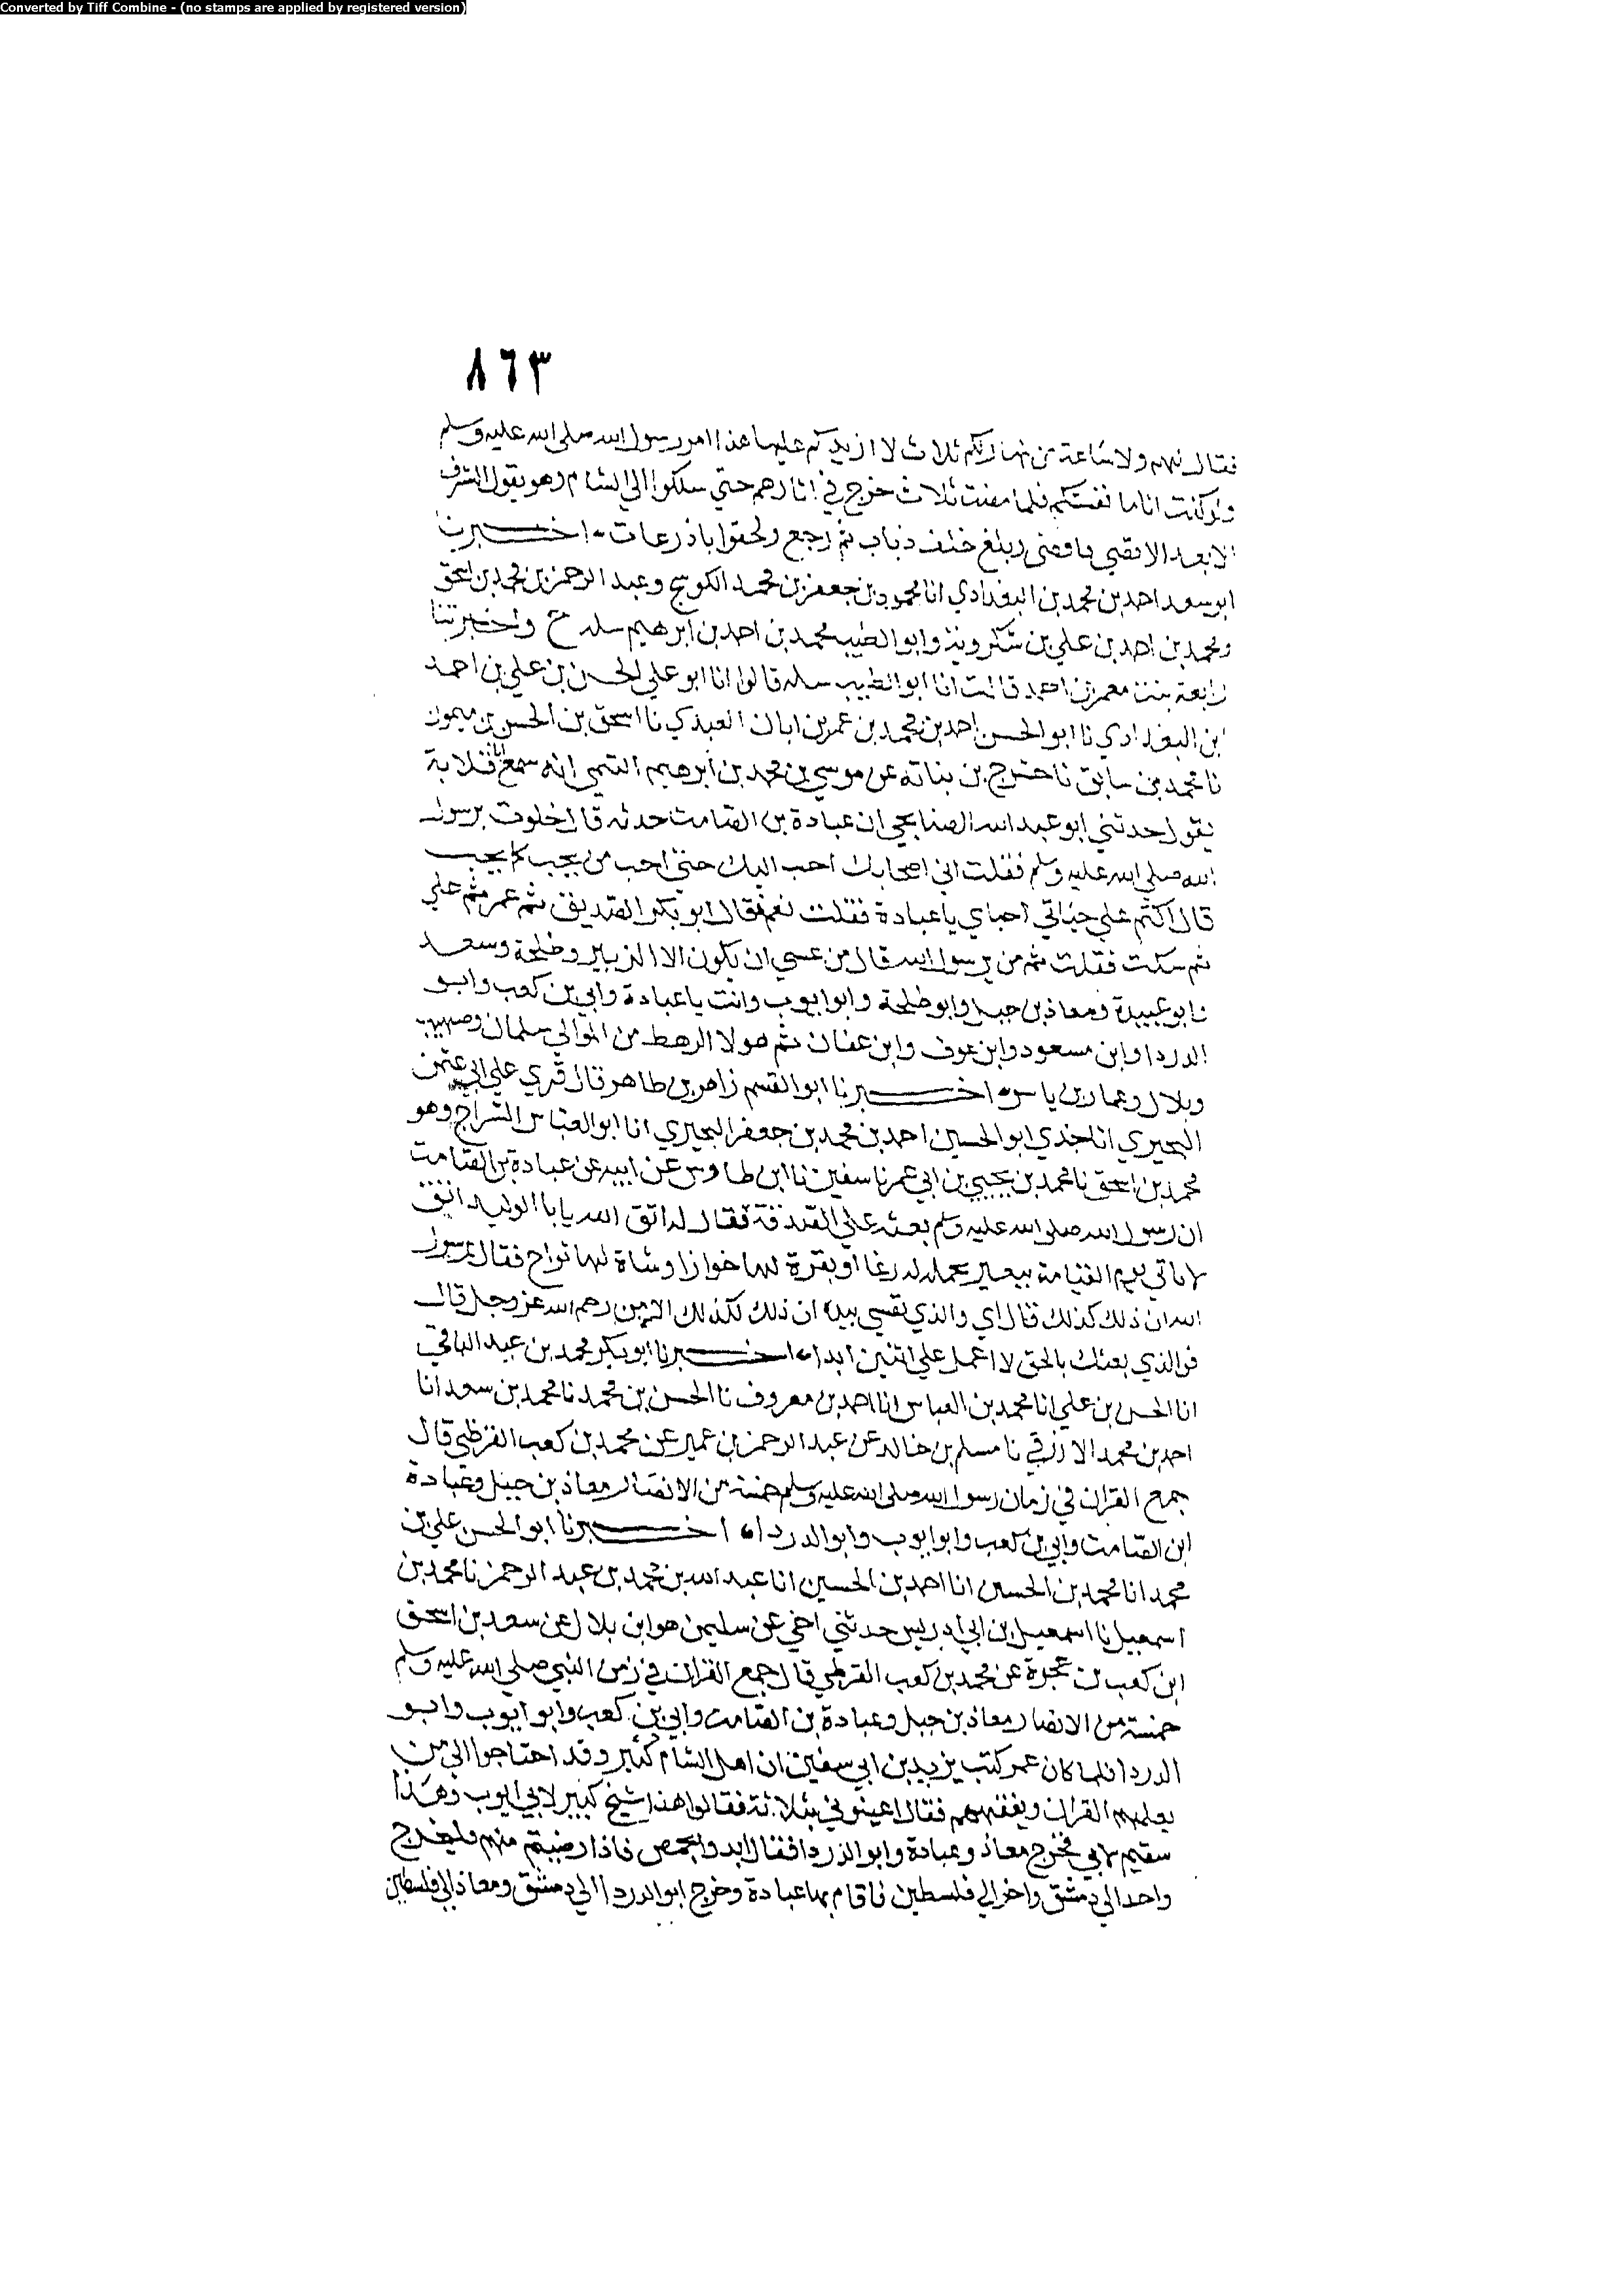 Converted by Tiff Combine - (no stamps are applied by registered version)
٨٦٣
فقال لهم ولا ساعة من نهار لكم ثلاث لا ازيدكم عليها هذا امر رسول الله صلى الله عليه وسلم
ولو كنت انا ما نفستكم فلما مضت ثلاث خرج في اثارهم حتي سلكوا الي الشام وهو يقول الشرف
الابعد الاقصي فاقصى وبلغ خلف ذباب ثم رجع ولحقوا باذرعات اخـــبرنا
ابو سعد احمد بن محمد بن البغدادي انا محمود بن جعفر بن محمد الكوسج وعبد الرحمن بن محمد بن اسحق
ومحمد بن احمد بن علي بن شكرويه وابو الطيب محمد بن احمد بن ابرهيم سله ح واخبرتنا
رابعة بنت معمر بن احمد قالت انا ابو الطيب سله قالوا انا ابو علي الحسن بن علي بن احمد
ابن البغدادي نا ابو الحسن احمد بن محمد بن عمر بن ابان العبدي نا اسحق بن الحسن بن ميمون
نا محمد بن سابق نا حشرج بن نباته عن موسي بن محمد بن ابرهيم التيمي انه سمع ابا قلابة
يقول حدثني ابو عبد الله الصنابحي ان عبادة بن الصامت حدثه قال خلوت برسول
الله صلي الله عليه وسلم فقلت اي اصحابك احب اليك حتي احب من تحب كما تحب
قال اكتم علي حياتي احباي يا عبادة فقلت نعم فقال ابو بكر الصديق ثم عمر ثم علي
ثم سكت فقلت ثم من يرسول الله قال من عسي ان يكون الا الزبير وطلحة وسعد
وابو عبيدة ومعاذ بن جبل وابو طلحة وابو ايوب وانت يا عبادة وابي بن كعب وابو
الدردا وابن مسعود وابن عوف وابن عفان ثم هولا الرهط من الموالي سلمان وصهيب
وبلال وعمار بن ياسر اخـــبرنا ابو القسم زاهر بن طاهر قال قري علي ابي عثمن
البحيري انا جدي ابو الحسين احمد بن محمد بن جعفر البحيري انا ابو العباس السراج وهو
محمد بن اسحق نا محمد بن يحيي بن ابي عمر نا سفين نا ابن طاوس عن ابيه عن عبادة بن الصامت
ان رسول الله صلى الله عليه وسلم بعثه علي الصدقة فقال له اتق الله يا با الوليد اتق
لا تاتي يوم القيامة ببعير تحمله له رغا او بقرة لها خوار او شاة لها ثواج فقال يرسول
الله ان ذلك كذلك قال اي والذي نفسي بيده ان ذلك لكذلك الا من رحم الله عز وجل قال
فوالذي بعثك بالحق لا اعمل علي اثنين ابدا اخـــبرنا ابو بكر محمد بن عبد الباقي
انا الحسن بن علي انا محمد بن العباس انا احمد بن معروف نا الحسن بن محمد نا محمد بن سعد انا
احمد بن محمد الازرقي نا مسلم بن خالد عن عبد الرحمن بن عمير عن محمد بن كعب القرظي قال
جمع القران في زمان رسول الله صلى الله عليه وسلم خمسة من الانصار معاذ بن جبل وعبادة
ابن الصامت وابي بن كعب وابو ايوب وابو الدردا اخـــبرنا ابو الحسن علي بن
محمد انا محمد بن الحسين انا احمد بن الحسين انا عبد الله بن محمد بن عبد الرحمن نا محمد بن
اسمعيل نا اسمعيل بن ابي ادريس حدثني اخي عن سليمن هو ابن بلال عن سعد بن اسحق
ابن كعب بن عجرة عن محمد بن كعب القرظي قال جمع القران في زمن النبي صلي الله عليه وسلم
خمسة من الانصار معاذ بن جبل وعبادة بن الصامت وابي بن كعب وابو ايوب وابو
الدردا فلما كان عمر كتب يزيد بن ابي سفين ان اهل الشام كثير وقد احتاجوا الي من
يعلمهم القران ويفقههم فقال اعينوني بثلاثة فقالوا هذا شيخ كبير لابي ايوب وهذا
سقيم لابي فخرج معاذ وعبادة وابو الدردا فقال ابدوا بحمص فاذا رضيتم منهم فليخرج
واحد الي دمشق واخر الي فلسطين فاقام بها عبادة وخرج ابو الدردا الي دمشق ومعاذ الي فلسطين